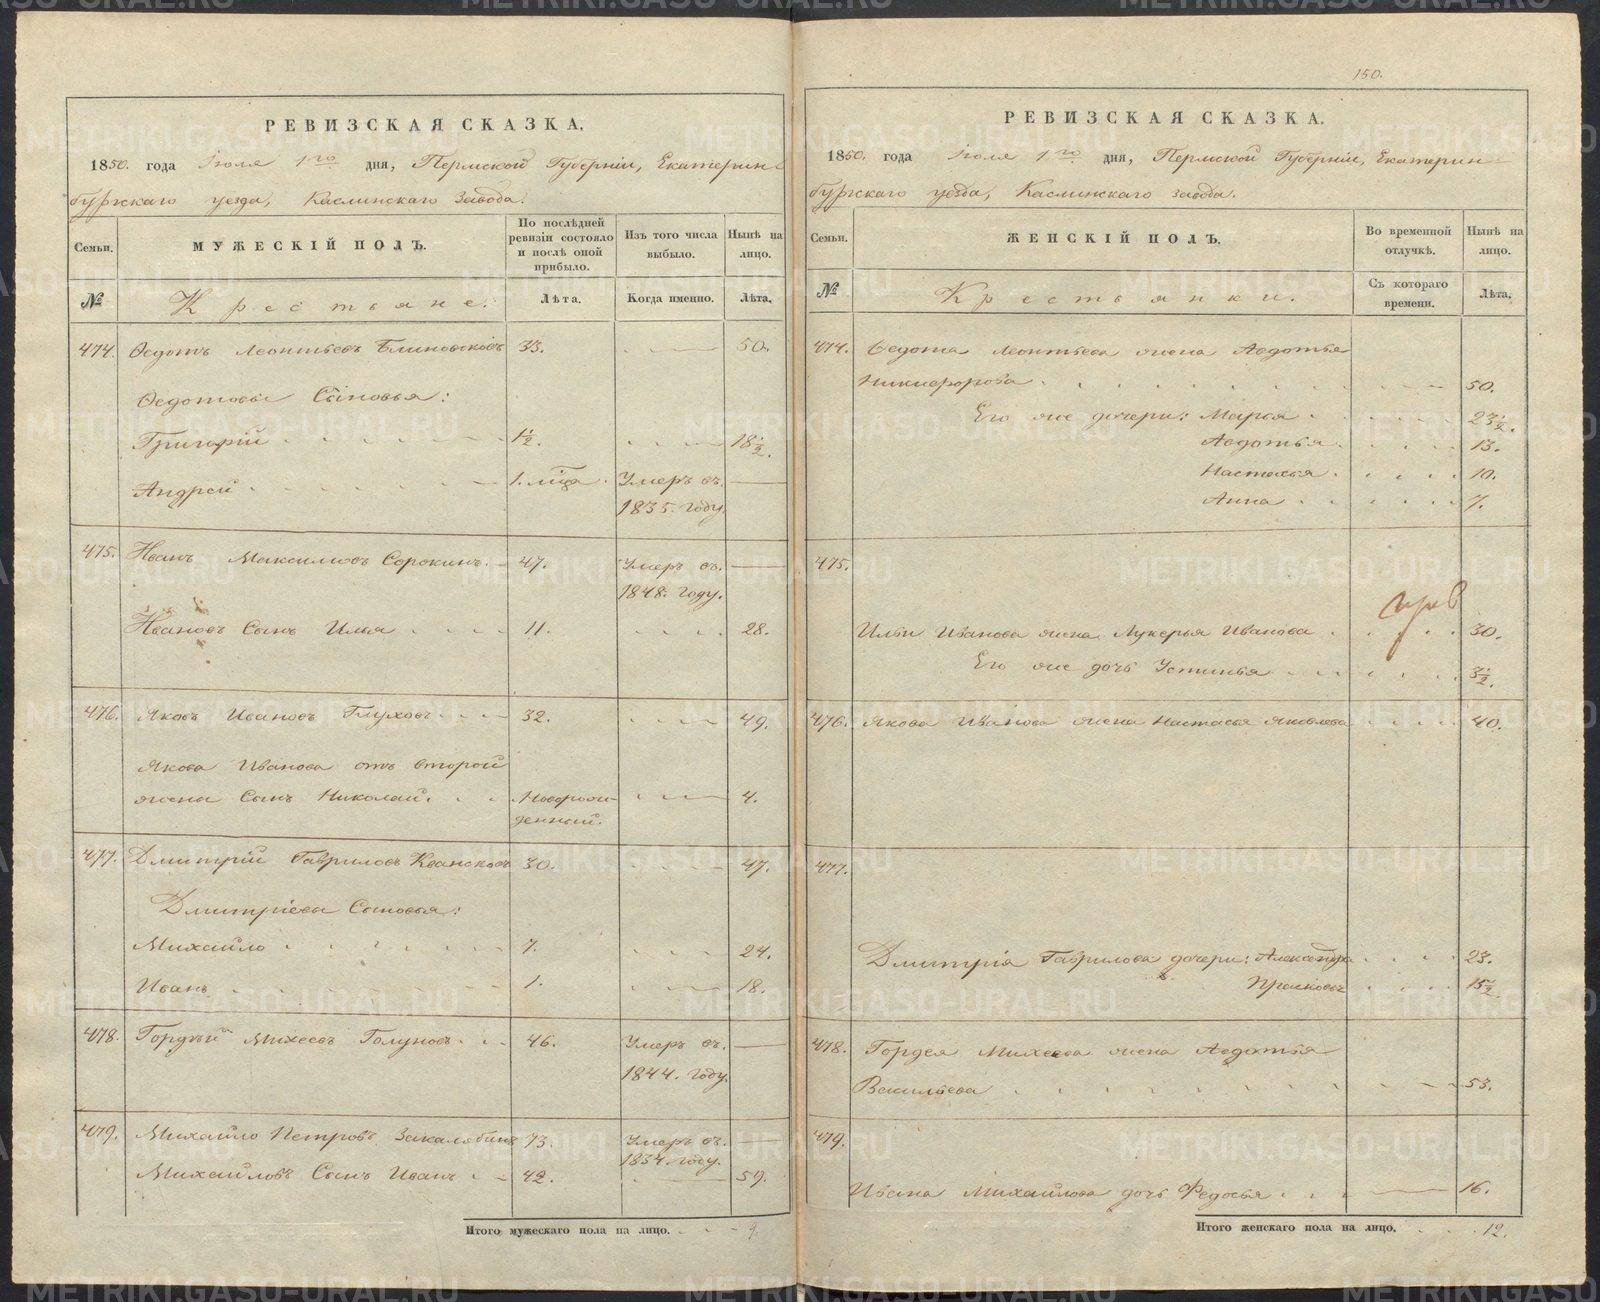 150.
РЕВИЗСКАЯ СКАЗКА.
1850. года Іюля 1го дня, Пермской Губерніи, Екатерин-
бургскаго уезда, Каслинскаго Завода.
Семьи. МУЖЕСКІЙ ПОЛЪ. По послѣдней ревизіи состояло и послѣ оной прибыло. Изъ того числа выбыло. Нынѣ на лицо.
№ Крестьяне. Лѣта. Когда именно. Лѣта.
474. Ѳедотъ Леонтьевъ 33. 50.
Ѳедотовы Сыновья:
Григорій 1/2. 18 1/2.
Андрей 1. мца. Умеръ въ
1835. году.
475. Иванъ Максимовъ Сорокинъ 47. Умеръ въ
1848. году.
Ивановъ Сынъ Илья 11. 28.
476. Яковъ Ивановъ Глуховъ 32. 49.
Якова Иванова отъ второй
жены Сынъ Николай. Новорож-
денный. 4.
477. Дмитрій Гавриловъ 30. 47.
Дмитріевы Сыновья:
Михайло 7. 24.
Иванъ 1. 18.
478. Гордѣй Михеевъ Голуновъ 46. Умеръ въ
1844. году.
479. Михайло Петровъ Закалябинъ 73. Умеръ въ
1834. году.
Михайловъ Сынъ Иванъ 42. 59.
Итого мужескаго пола на лицо. 9.
РЕВИЗСКАЯ СКАЗКА.
1850. года Іюля 1го дня, Пермской Губерніи, Екатерин-
бургскаго уезда, Каслинскаго Завода.
Семьи. ЖЕНСКІЙ ПОЛЪ. Во временной отлучкѣ. Нынѣ на лицо.
№ Крестьянки. Съ котораго времени. Лѣта.
474. Ѳедота Леонтьева жена Авдотья
Никифорова 50.
Его же дочери: Марья 23 1/2.
Авдотья 13.
Настасья 10.
Анна 7.
475.
Ильи Иванова жена Лукерья Иванова 30.
Его же дочь Устинья 3 1/2.
476. Якова Иванова жена Настасья Яковлева 40.
477.
Дмитрія Гаврилова дочери: Александра 23.
Прасковья 15 1/2
478. Гордея Михеева жена Авдотья
Васильева 53.
479.
Ивана Михайлова дочь Федосья 16.
Итого женскаго пола на лицо. 12.
METRIKI.GASO-URAL.RU